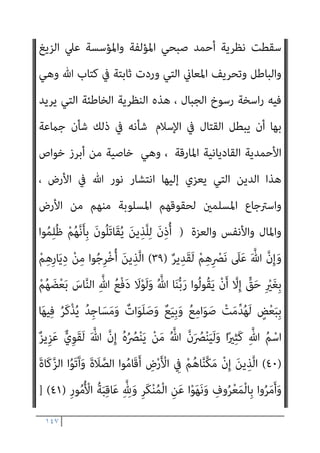 سقطت نظرية أحمد صبحي المؤلفة والمؤسسة علي الزيغ
والباطل وتحريف المعاني التي وردت ثابتة في كتاب الله وهي
فيه راسخة رسوخ الجبال ، هذه النظرية الخاطئة التي يريد
بها أن يبطل القتال في الإسلام شأنه في ذلك شأن جماعة
الأحمدية القاديانية المارقة ، وهي خاصية من أبرز خواص
هذا الدين التي يعزي إليها انتشار نور الله في الأرض ،
واسترجاع المسلمين لحقوقهم المسلوبة منهم من الأرض
والمال والأنفس والعزة ( أُذِنَ لِلَّذِينَ يُقَاتَلُونَ بِأَنَّهُمْ ظُلِمُوا
وَإِنَّ اللَّهَ عَلَى نَصْرِهِمْ لَقَدِيرٌ (٣٩) الَّذِينَ أُخْرِجُوا مِنْ دِيَارِهِمْ
بِغَيْرِ حَقٍّ إِلَّا أَنْ يَقُولُوا رَبُّنَا اللَّهُ وَلَوْلَا دَفْعُ اللَّهِ النَّاسَ بَعْضَهُمْ
بِبَعْضٍ لَهُدِّمَتْ صَوَامِعُ وَبِيَعٌ وَصَلَوَاتٌ وَمَسَاجِدُ يُذْكَرُ فِيهَا
اسْمُ اللَّهِ كَثِيرًا وَلَيَنْصُرَنَّ اللَّهُ مَنْ يَنْصُرُهُ إِنَّ اللَّهَ لَقَوِيٌّ عَزِيزٌ
(٤٠) الَّذِينَ إِنْ مَكَّنَّاهُمْ فِي الْأَرْضِ أَقَامُوا الصَّلَاةَ وَآتَوُا الزَّكَاةَ
وَأَمَرُوا بِالْمَعْرُوفِ وَنَهَوْا عَنِ الْمُنْكَرِ وَلِلَّهِ عَاقِبَةُ الْأُمُورِ (٤١) [
١٤٧